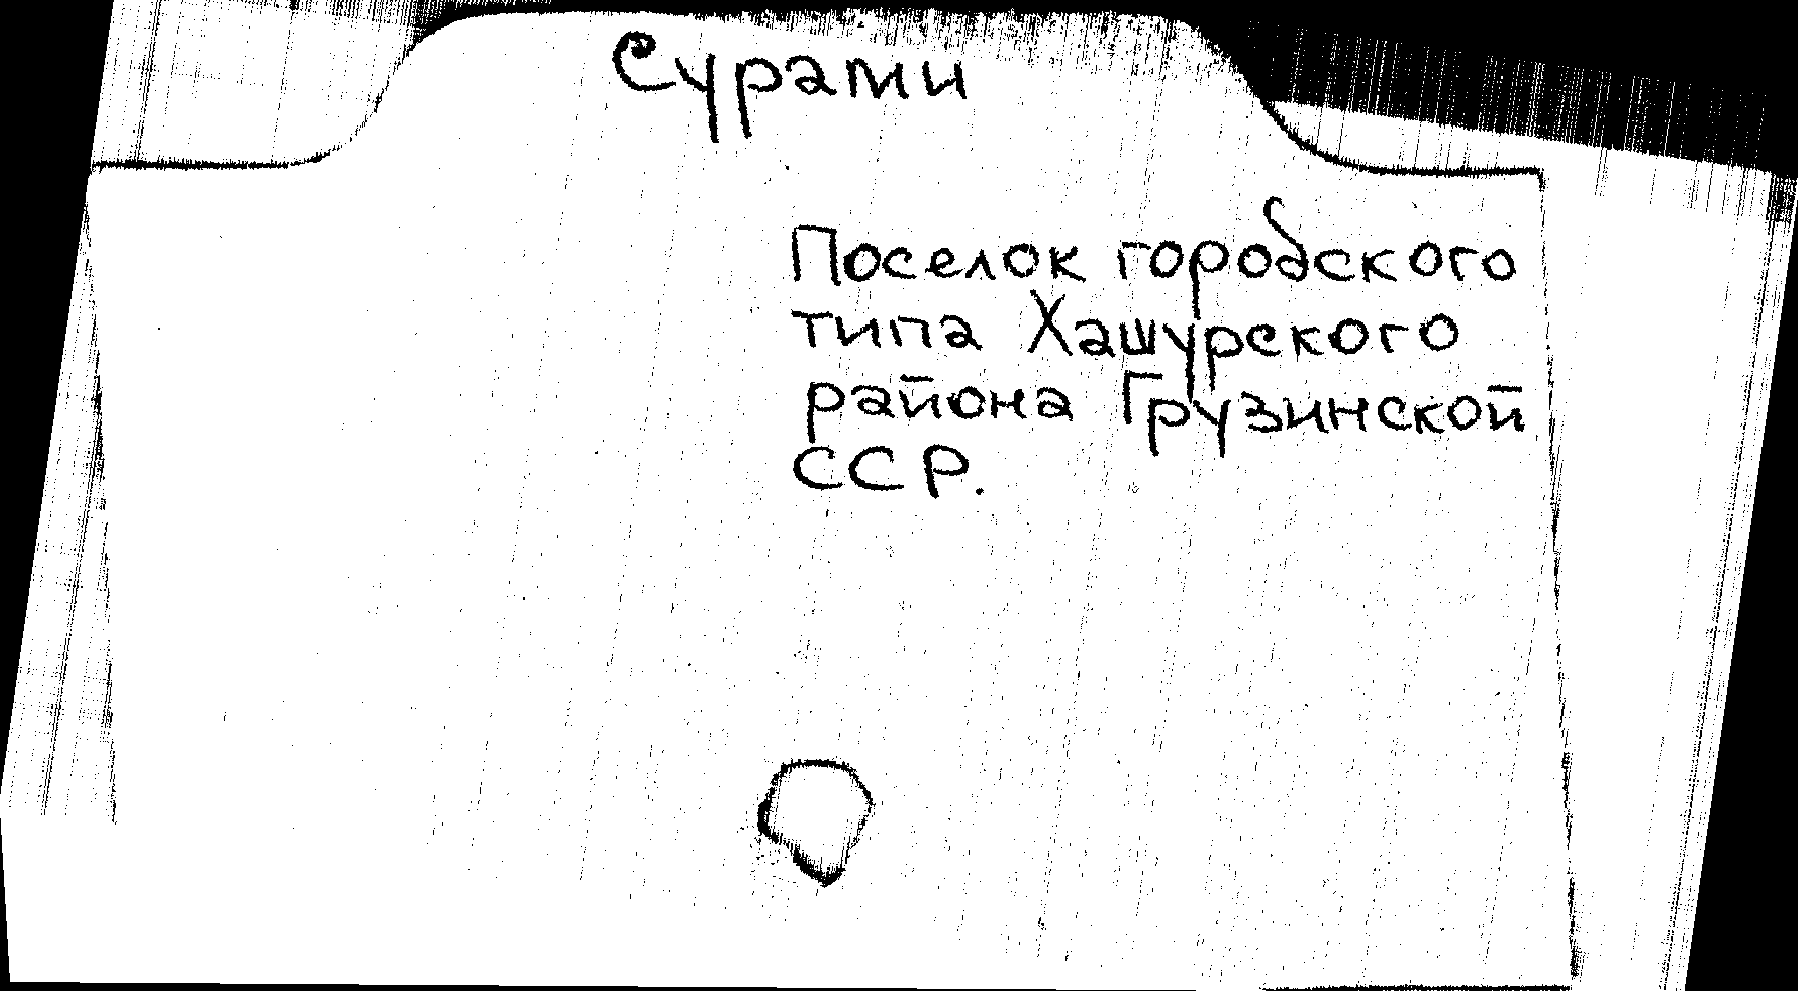 Сурами
Поселок городского
типа Хашурского
района Грузинской
ССР.